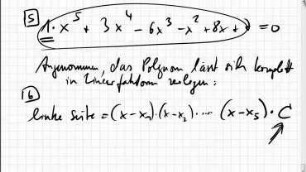 5
1·x⁵ + 3x⁴ - 6x³ - x² + 8x + = 0
Angenommen, das Polynom lässt sich komplett
in Linearfaktoren zerlegen:
6
linke Seite = (x-x₁)·(x-x₂)· ···· (x-x₅)·C